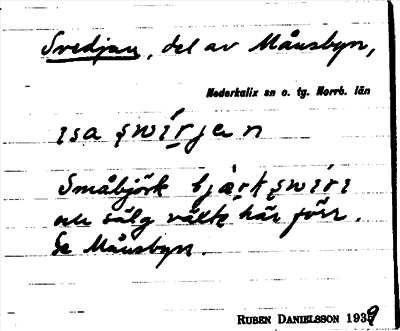 Svedjan, del av Månsbyn,
Nederkalix sn o. tg. Norrb. län
ɪsa ʂwíṛjen
Småbjörk bjàrkʂwiri
och sälg växte här förr.
Se Månsbyn.
RUBEN DANIELSSON 1939